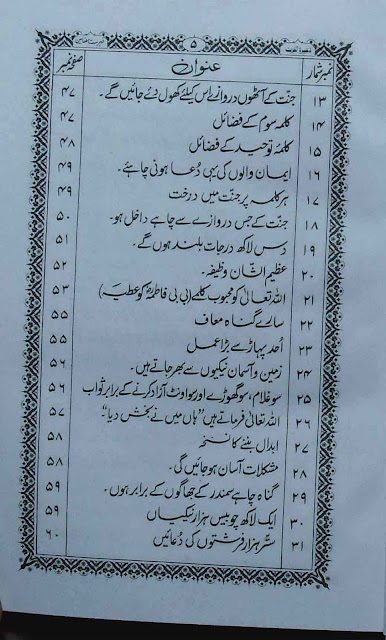 ۵
نمبر شمار عنوان صفحہ نمبر
۱۳ جنّت کے آٹھوں دروازے اس کیلئے کھول دئے جائیں گے۔ ۴۷
۱۴ کلمہ سوم کے فضائل ۴۷
۱۵ کلمۂ توحید کے فضائل ۴۸
۱۶ ایمان والوں کی یہی دُعا ہونی چاہئے۔ ۴۹
۱۷ ہر کلمہ پر جنّت میں درخت ۴۹
۱۸ جنت کے جس دروازے سے چاہے داخل ہو۔ ۵۰
۱۹ دس لاکھ درجات بلند ہوں گے۔ ۵۱
۲۰ عظیم الشّان وظیفہ۔ ۵۲
۲۱ اللہ تعالیٰ کو محبوب کلمے (بی بی فاطمہؓ کو عطیہ) ۵۳
۲۲ سارے گناہ معاف ۵۵
۲۳ اُحد پہاڑ سے بڑا عمل ۵۵
۲۴ زمین و آسمان نیکیوں سے بھر جاتے ہیں۔ ۵۶
۲۵ سو غلام، سو گھوڑے اور سو اونٹ آزاد کرنے کے برابر ثواب ۵۶
۲۶ اللہ تعالیٰ فرماتے ہیں ”ہاں میں نے بخش دیا“ ۵۷
۲۷ ابدال بننے کا نسخہ ۵۸
۲۸ مشکلات آسان ہو جائیں گی۔ ۵۸
۲۹ گناہ چاہے سمندر کے جھاگوں کے برابر ہوں۔ ۵۹
۳۰ ایک لاکھ چوبیس ہزار نیکیاں ۵۹
۳۱ ستّر ہزار فرشتوں کی دُعائیں ۶۰